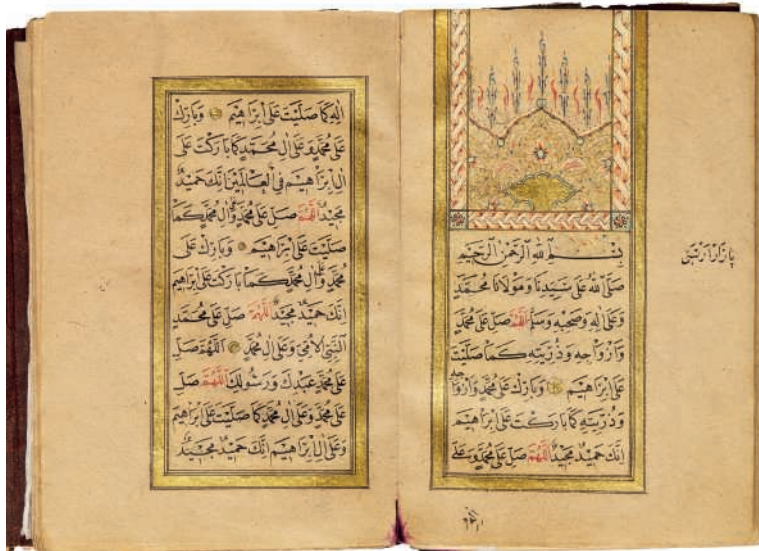 بِسْمِ اللهِ الرَّحْمٰنِ الرَّحِيْمِ
صَلَّى اللهُ عَلَى سَيِّدِنَا وَمَوْلَانَا مُحَمَّدٍ
وَعَلَى اٰلِهِ وَصَحْبِهِ وَسَلَّمَ اَللّٰهُمَّ صَلِّ عَلَى مُحَمَّدٍ
وَاَزْوَاجِهِ وَذُرِّيَّتِهِ كَمَا صَلَّيْتَ
عَلَى اِبْرَاهِيْمَ وَبَارِكْ عَلَى مُحَمَّدٍ وَاَزْوَاجِهِ
وَذُرِّيَّتِهِ كَمَا بَارَكْتَ عَلَى اِبْرَاهِيْمَ
اِنَّكَ حَمِيْدٌ مَجِيْدٌ اَللّٰهُمَّ صَلِّ عَلَى مُحَمَّدٍ وَعَلَى
اٰلِهِ كَمَا صَلَّيْتَ عَلَى اِبْرَاهِيْمَ وَبَارِكْ
عَلَى مُحَمَّدٍ وَعَلَى اٰلِ مُحَمَّدٍ كَمَا بَارَكْتَ عَلَى
اٰلِ اِبْرَاهِيْمَ فِي الْعَالَمِيْنَ اِنَّكَ حَمِيْدٌ
مَجِيْدٌ اَللّٰهُمَّ صَلِّ عَلَى مُحَمَّدٍ وَعَلَى اٰلِ مُحَمَّدٍ كَمَا
صَلَّيْتَ عَلَى اِبْرَاهِيْمَ وَبَارِكْ عَلَى
مُحَمَّدٍ وَعَلَى اٰلِ مُحَمَّدٍ كَمَا بَارَكْتَ عَلَى اِبْرَاهِيْمَ
اِنَّكَ حَمِيْدٌ مَجِيْدٌ اَللّٰهُمَّ صَلِّ عَلَى مُحَمَّدٍ
اَلنَّبِيِّ الْاُمِّيِّ وَعَلَى اٰلِ مُحَمَّدٍ اَللّٰهُمَّ صَلِّ
عَلَى مُحَمَّدٍ عَبْدِكَ وَرَسُوْلِكَ اَللّٰهُمَّ صَلِّ
عَلَى مُحَمَّدٍ وَعَلَى اٰلِ مُحَمَّدٍ كَمَا صَلَّيْتَ عَلَى اِبْرَاهِيْمَ
وَعَلَى اٰلِ اِبْرَاهِيْمَ اِنَّكَ حَمِيْدٌ مَجِيْدٌ